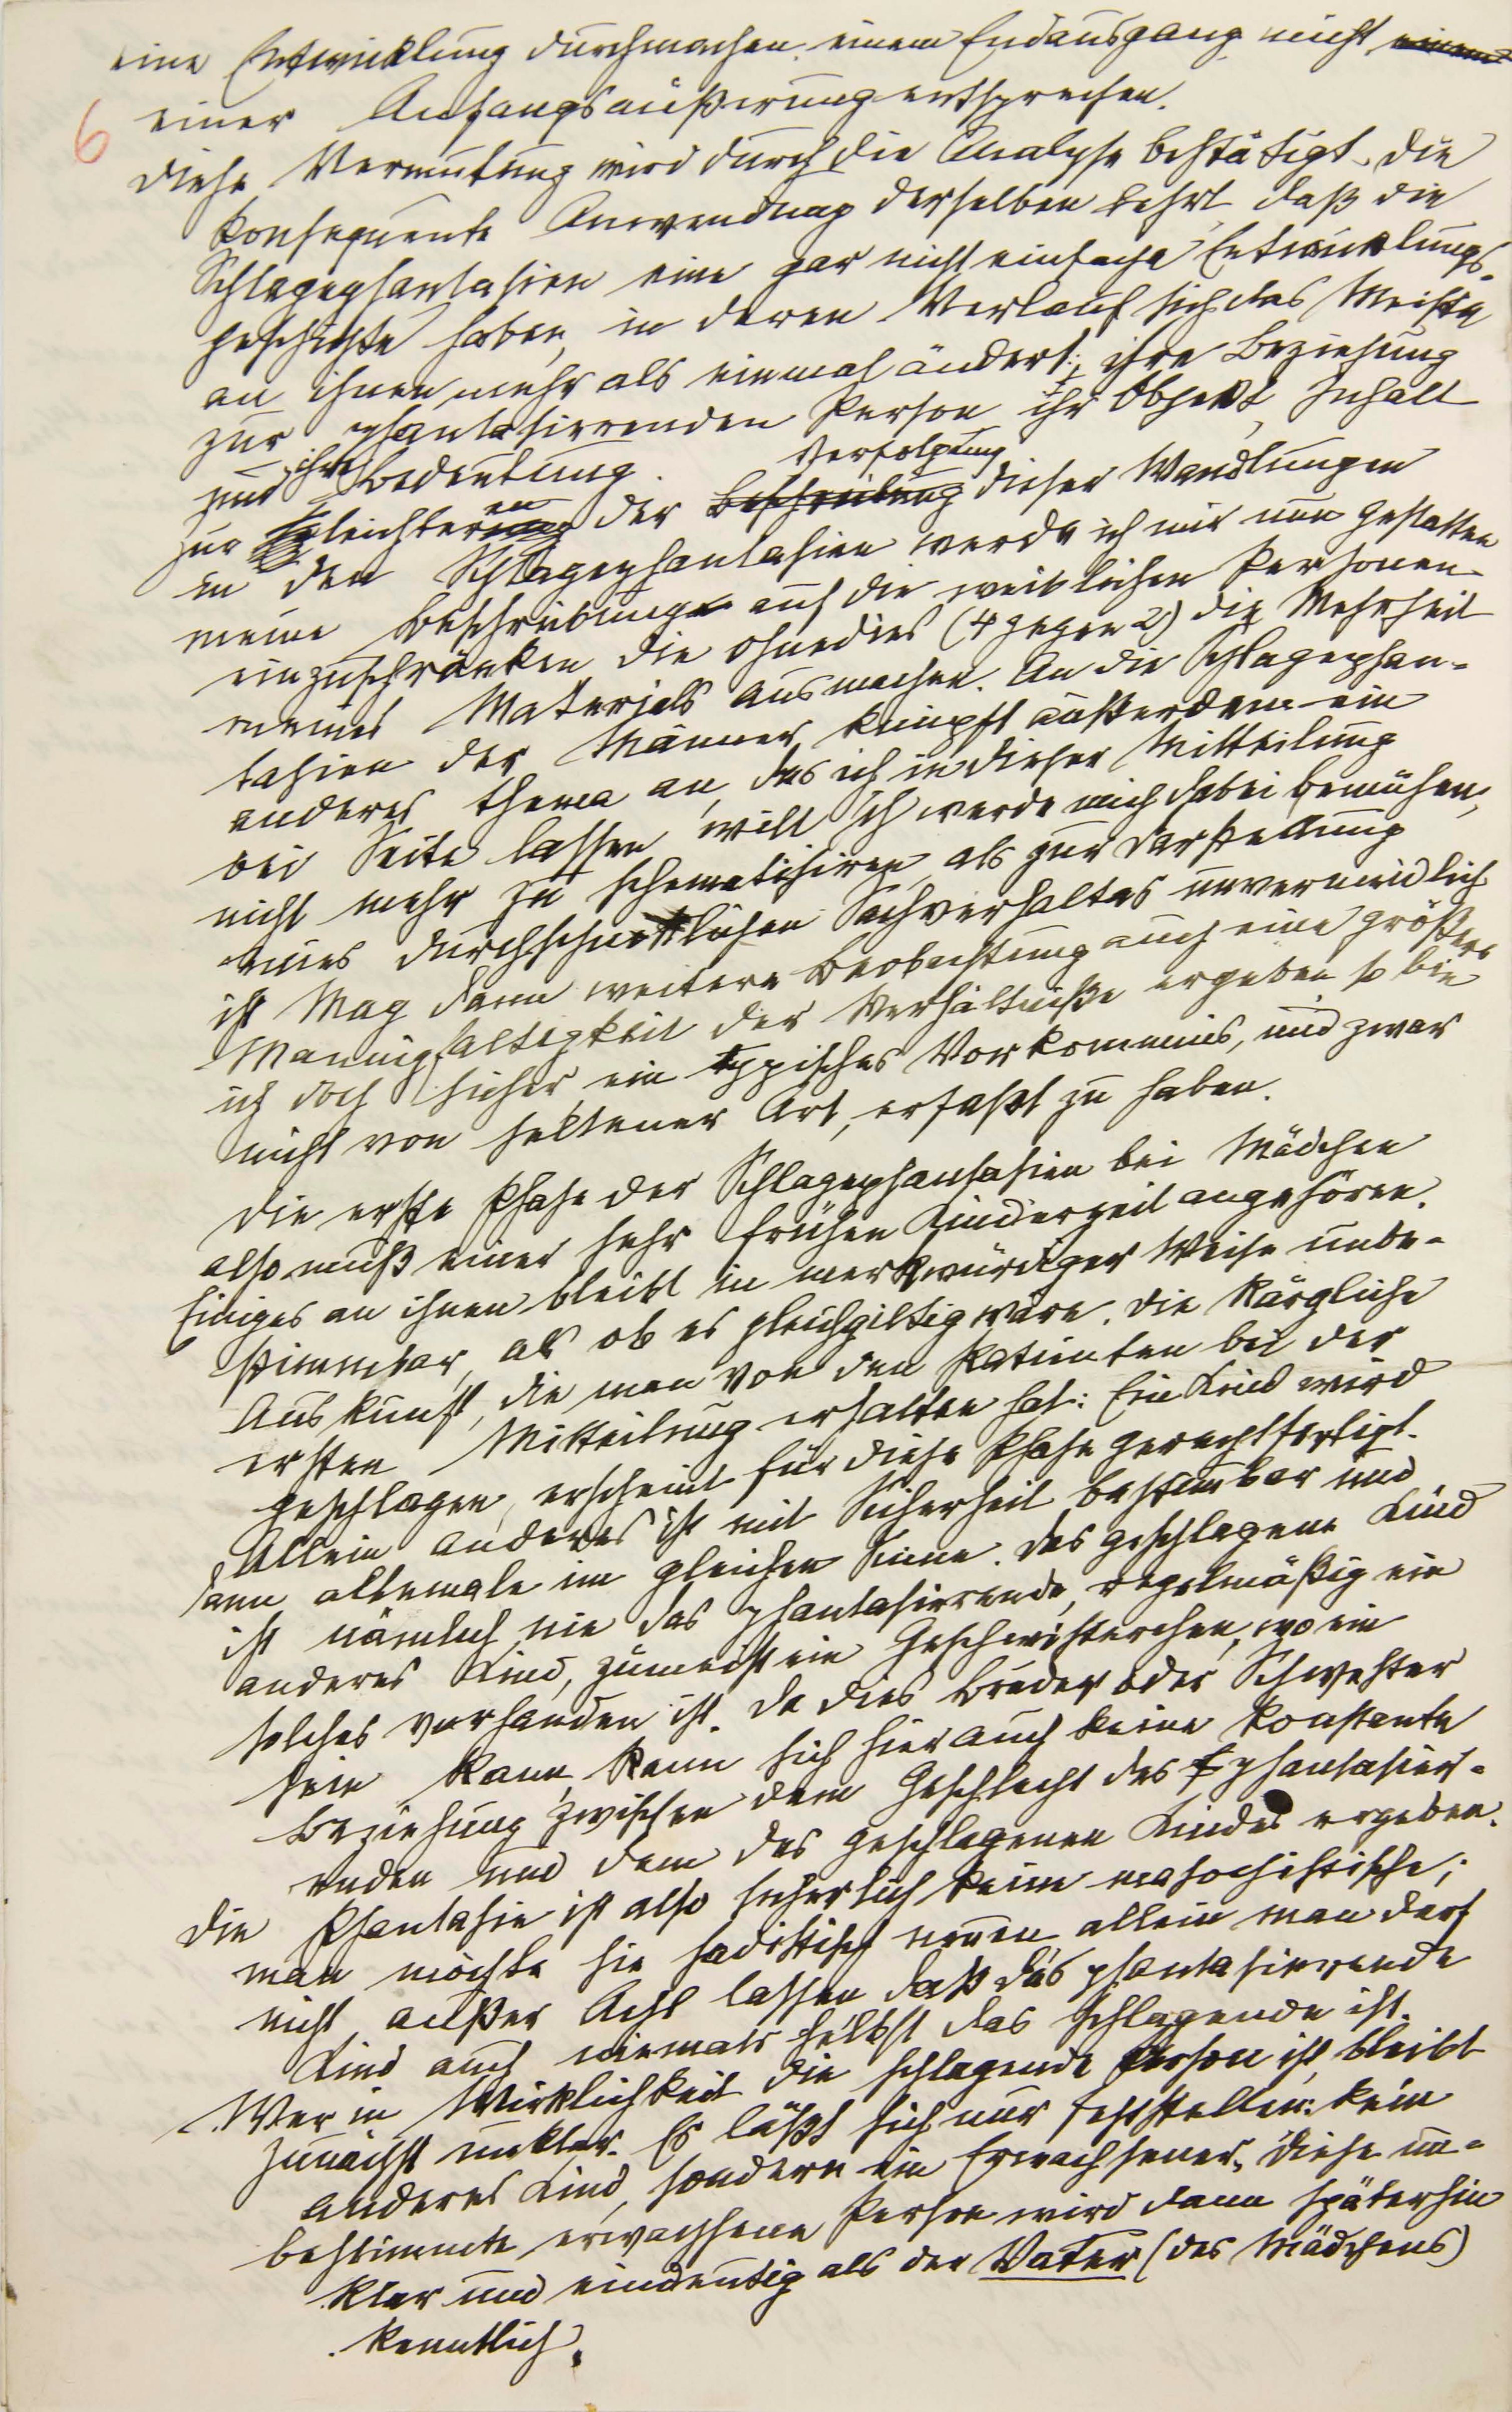 eine Entwicklung durchmachen, einem Endausgang, nicht einem
6
einer Anfangsäußerung entsprechen.
Diese Vermutung wird durch die Analyse bestätigt. Die
konsequente Anwendung derselben lehrt, daß die
Schlagephantasien eine gar nicht einfache Entwicklungs-
geschichte haben, in deren Verlauf sich das Meiste
an ihnen mehr als einmal ändert: ihre Beziehung
zur phantasierenden Person, ihr Objekt, Inhalt
und ihre Bedeutung.
Verfolgung
Zur leichteren der Beschreibung dieser Wandlungen
in den Schlagephantasien werde ich mir nun gestatten
meine Beschreibungen auf die weiblichen Personen
einzuschränken, die ohnedies (4 gegen 2) die Mehrheit
meines Materials ausmachen. An die Schlagephan-
tasien der Männer knüpft außerdem ein
anderes Thema an, das ich in dieser Mitteilung
bei Seite lassen will. Ich werde mich dabei bemühen,
nicht mehr zu schematisiren, als zur Darstellung
eines durchschnittlichen Sachverhaltes unvermeidlich
ist. Mag dann weitere Beobachtung auch eine größere
Mannigfaltigkeit der Verhältniße ergeben, so bin
ich doch sicher, ein typisches Vorkommnis, und zwar
nicht von seltener Art, erfaßt zu haben.
Die erste Phase der Schlagephantasien bei Mädchen
also muß einer sehr frühen Kinderzeit angehören.
Einiges an ihnen bleibt in merkwürdiger Weise unbe-
stimmbar, als ob es gleichgiltig wäre. Die kärgliche
Auskunft, die man von den Patienten bei der
ersten Mitteilung erhalten hat: Ein Kind wird
geschlagen, erscheint für diese Phase gerechtfertigt.
Allein anderes ist mit Sicherheit bestimmbar und
dann allemale im gleichen Sinne. Das geschlagene Kind
ist nämlich nie das phantasirende, regelmäßig ein
anderes Kind, zumeist ein Geschwisterchen, wo ein
solches vorhanden ist. Da dies Bruder oder Schwester
sein kann, kann sich hier auch keine konstante
Beziehung zwischen dem Geschlecht des phantasir-
enden und dem des geschlagenen Kindes ergeben.
Die Phantasie ist also sicherlich keine masochistische;
man möchte sie sadistisch nennen, allein man darf
nicht außer Acht lassen, daß das phantasirende
Kind auch niemals selbst das schlagende ist.
Wer in Wirklichkeit die schlagende Person ist, bleibt
zunächst unklar. Es läßt sich nur feststellen: kein
anderes Kind, sondern ein Erwachsener. Diese un-
bestimmte erwachsene Person wird dann späterhin
klar und eindeutig als der Vater (des Mädchens)
kenntlich.